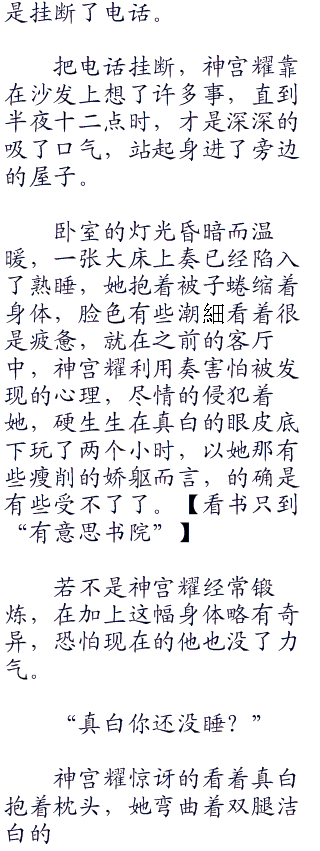 是挂断了电话。
把电话挂断，神宫耀靠
在沙发上想了许多事，直到
半夜十二点时，才是深深的
吸了口气，站起身进了旁边
的屋子。
卧室的灯光昏暗而温
暖，一张大床上奏已经陷入
了熟睡，她抱着被子蜷缩着
身体，脸色有些潮細看着很
是疲惫，就在之前的客厅
中，神宫耀利用奏害怕被发
现的心理，尽情的侵犯着
她，硬生生在真白的眼皮底
下玩了两个小时，以她那有
些瘦削的娇躯而言，的确是
有些受不了了。【看书只到
“有意思书院”】
若不是神宫耀经常锻
炼，在加上这幅身体略有奇
异，恐怕现在的他也没了力
气。
“真白你还没睡？”
神宫耀惊讶的看着真白
抱着枕头，她弯曲着双腿洁
白的